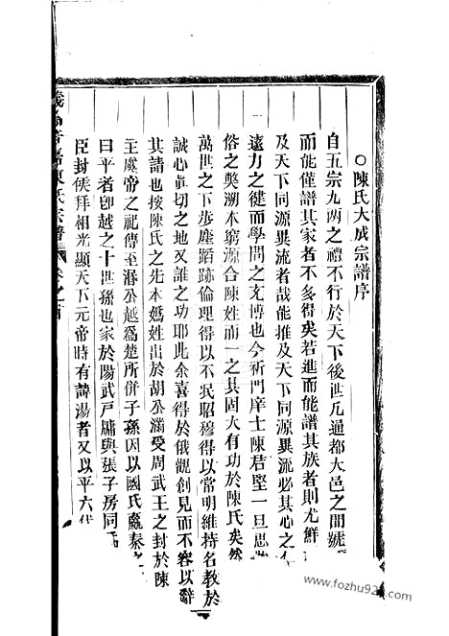 ○陳氏大成宗譜序
自五宗九兩之禮不行於天下後世凡通都大邑之間號
而能僅譜其家者不多得矣若進而能譜其族者則尤鮮
及天下同源異流者哉能推及天下同源異流必其心之
遠力之健而學問之充博也今祈門庠士陳君堅一旦思
俗之獘溯本窮源合陳姓而一之其固大有功於陳氏矣然
萬世之下步塵蹈跡倫理得以不冺昭穆得以常明維持名教於
誠心眞切之地又誰之功耶此余喜得於俄觀創見而不容以辭
其請也按陳氏之先本媯姓出於胡公滿受周武王之封於陳
主虞帝之祀傳至湣公越爲楚所併子孫因以國氏
曰平者卽越之十世孫也家於陽武戸牖與張子房同
臣封侯拜相光顯天下元帝時有諱湯者又以平六代
陳氏宗譜 卷之首
www.fozhu920.com